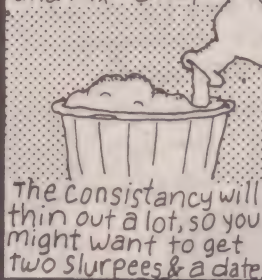 The consistancy will
thin out a lot, so you
might want to get
two slurpees & a date